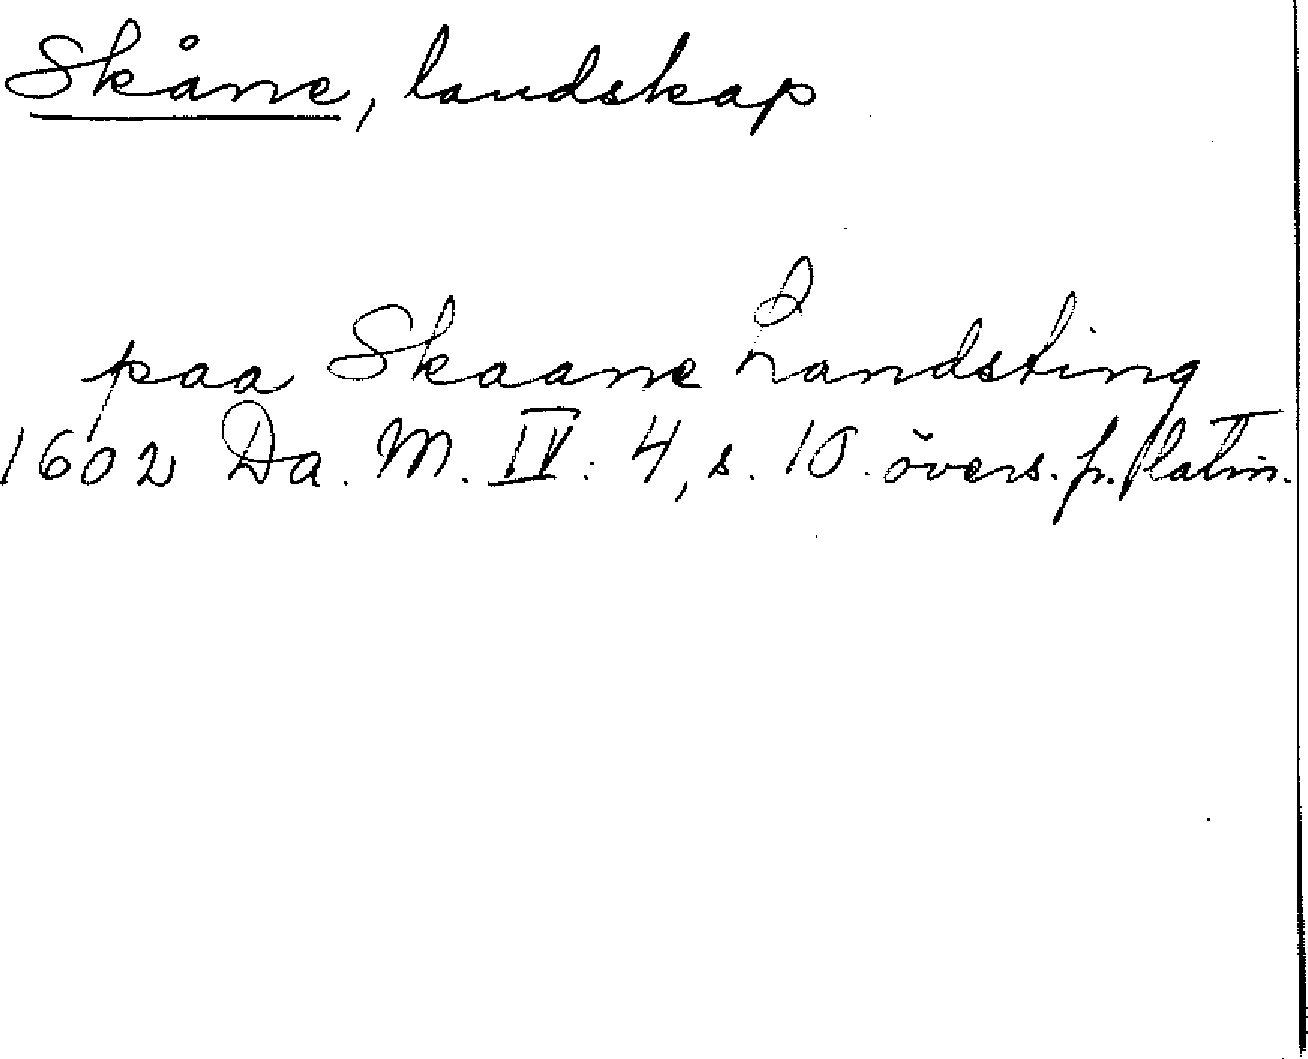 Skåne, landskap
paa Skaane Landsting
1602 Da. M. IV: 4, s. 10. övers. fr. latin.